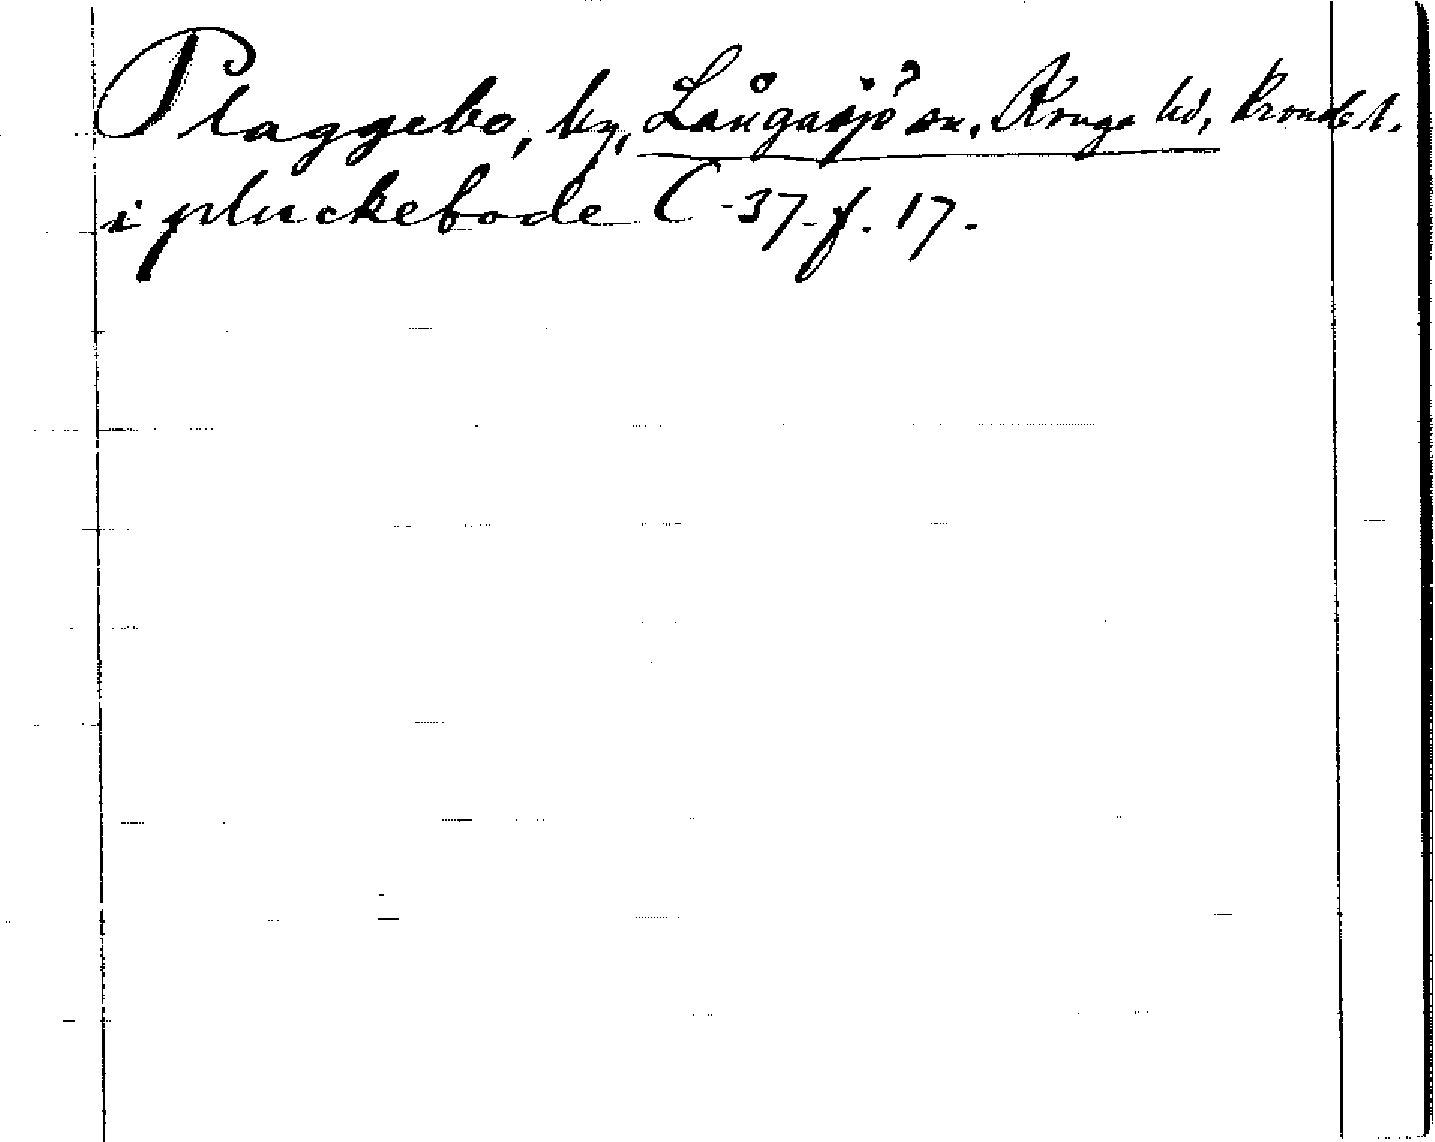 Plaggebo, by, Långasjö sn, Konga hd, Kronob l.
i pluckebode C-37-f. 17.